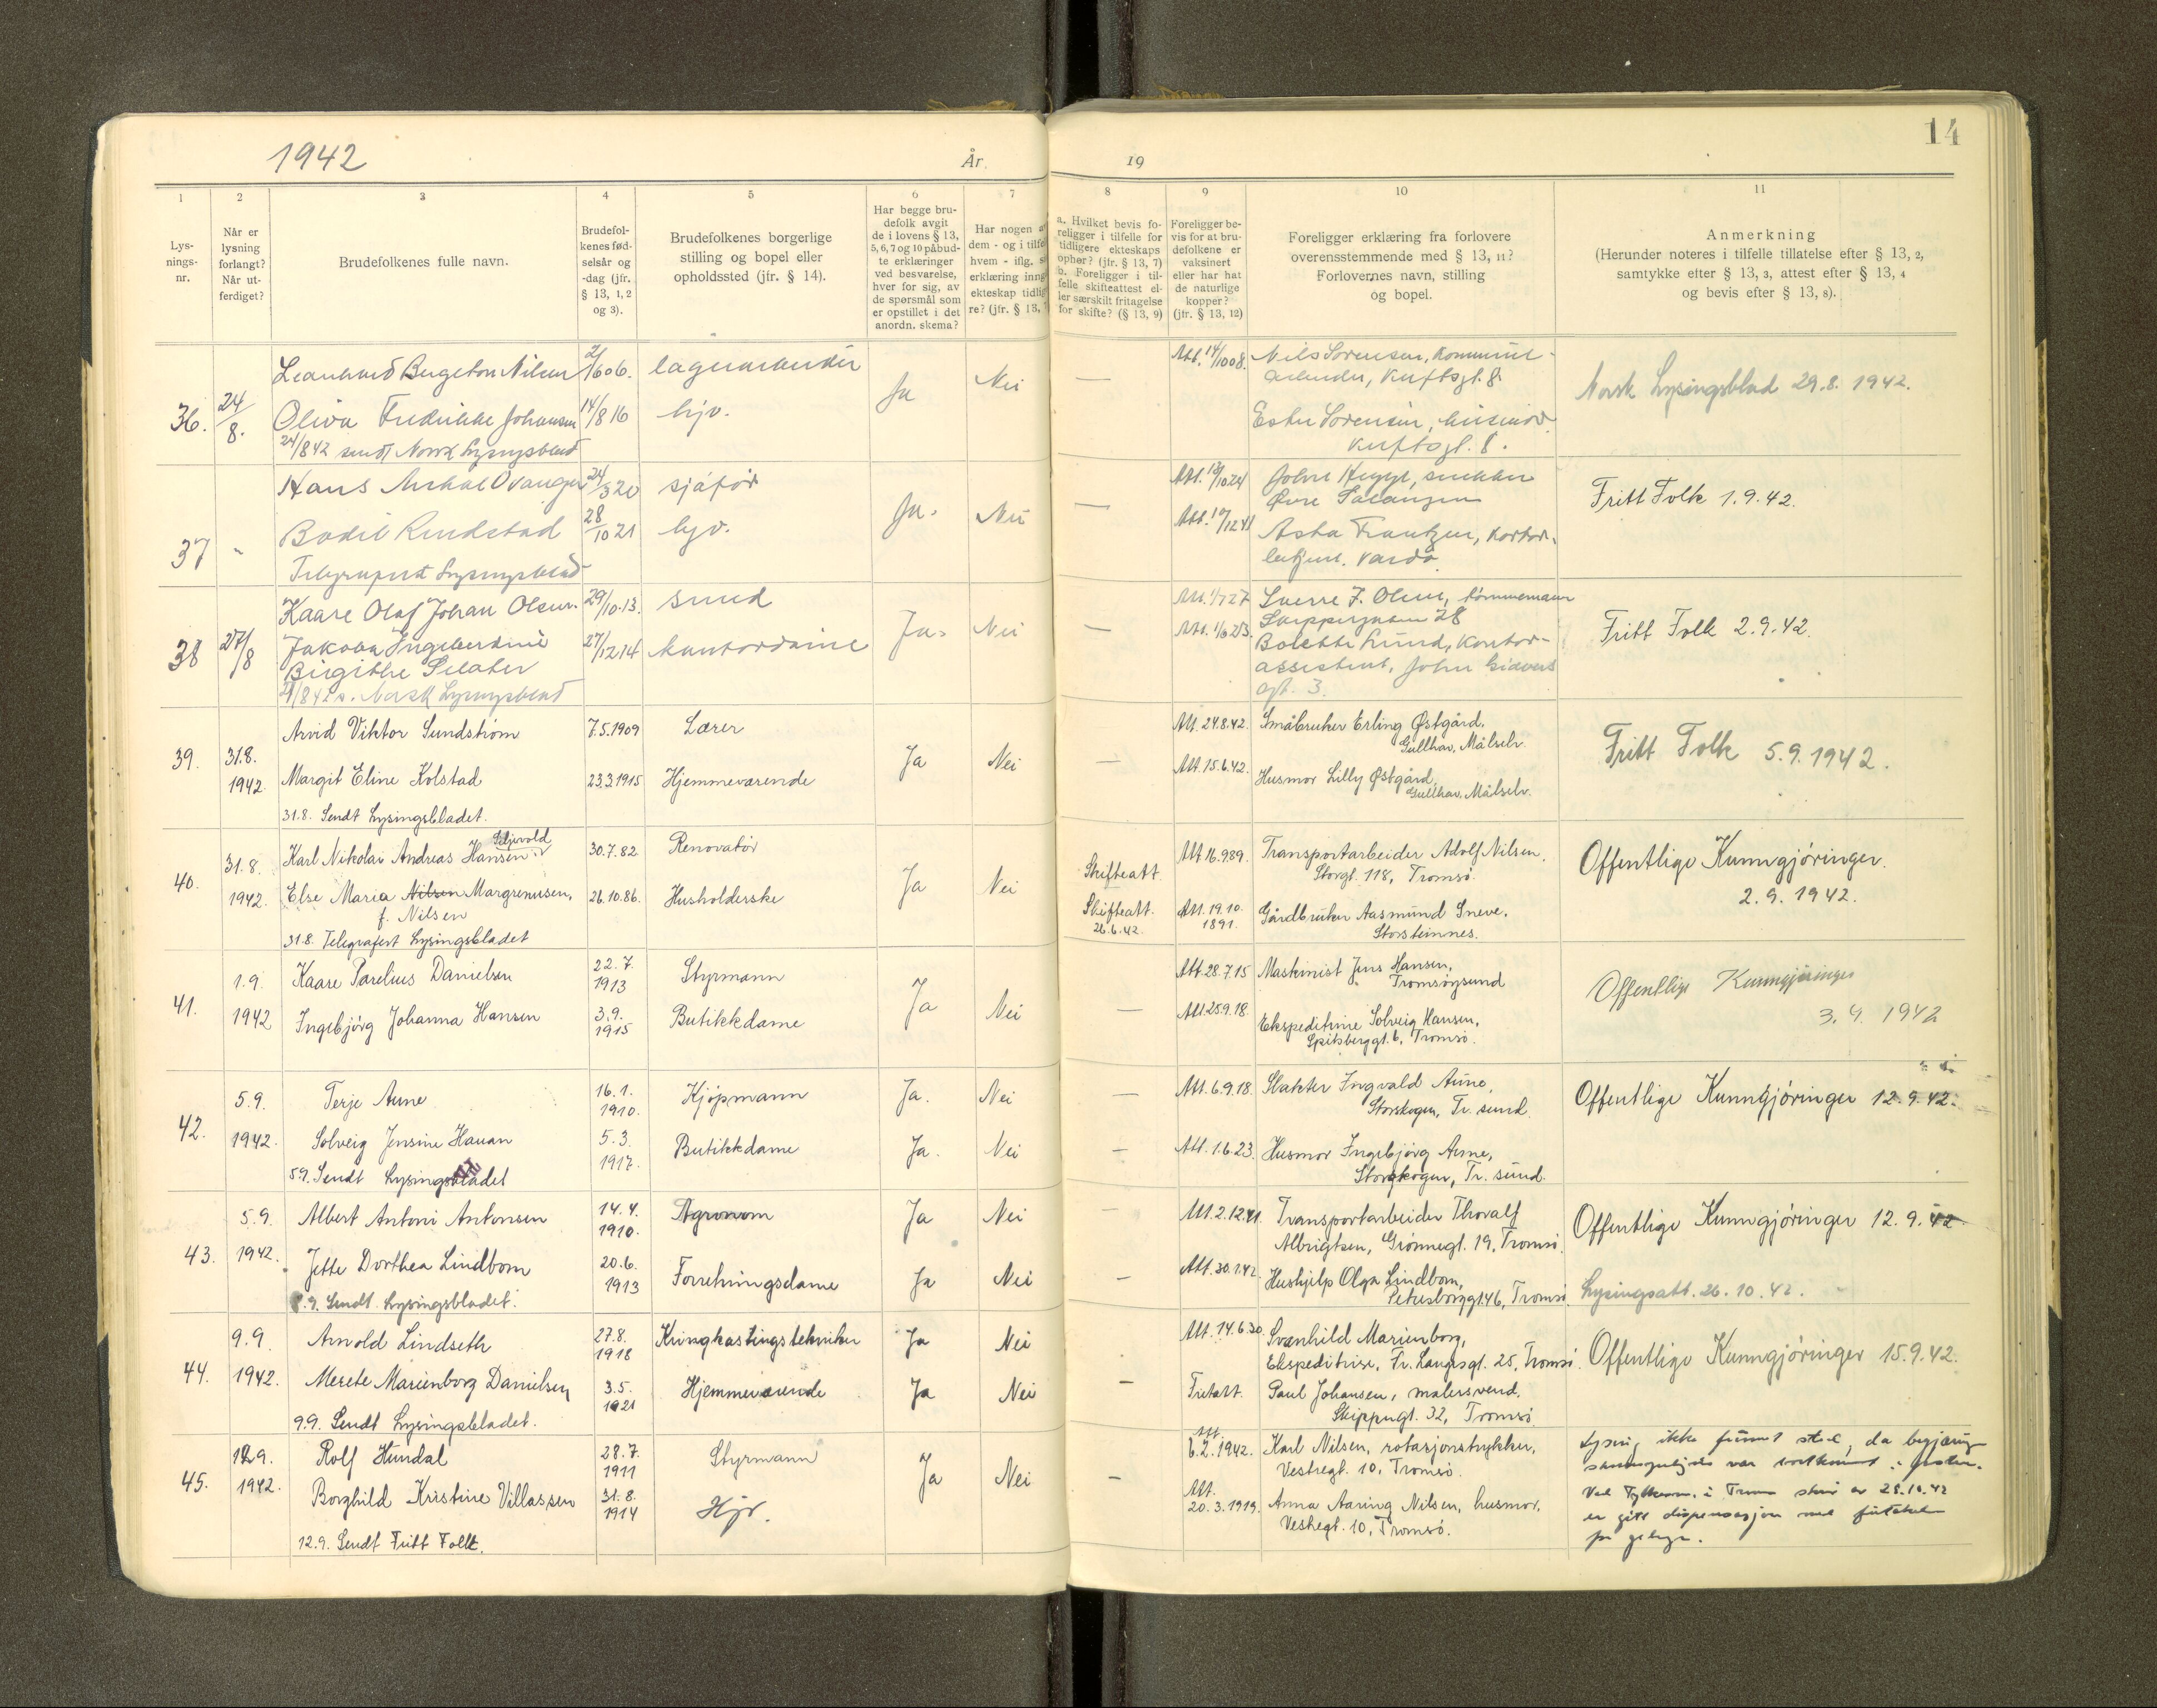 1942
År.
19
14
1
2
3
4
5
6
7
8
9
10
11
Lys-
nings-
nr.
Når er
lysning
forlangt?
Når ut-
ferdiget?
Brudefolkenes fulle navn.
Brudefol-
kenes fød-
selsår og
-dag (jfr.
§ 13, 1, 2
og 3).
Brudefolkenes borgerlige
stilling og bopel eller
opholdssted (jfr. § 14).
Har begge bru-
defolk avgit
de i lovens § 13,
5, 6, 7 og 10 påbud-
te erklæringer
ved besvarelse,
hver for sig, av
de spørsmål som
er opstillet i det
anordn. skema?
Har nogen
dem - og i
hvem - iflg.
erklæring
ekteskap
re? (jfr. § 13,
a. Hvilket bevis fo-
religger i tilfelle for
tidligere ekteskaps
ophør? (jfr. § 13, 7)
b. Foreligger i til-
felle skifteattest el-
ler særskilt fritagelse
for skifte? (§ 13, 9)
Foreligger be-
vis for at bru-
defolkene er
vaksinert
eller har hat
de naturlige
kopper?
(jfr. § 13, 12)
Foreligger erklæring fra forlovere
overensstemmende med § 13, 11?
Forlovernes navn, stilling
og bopel.
Anmerkning
(Herunder noteres i tilfelle tillatelse efter § 13, 2,
samtykke efter § 13, 3, attest efter § 13, 4
og bevis efter § 13, 8).
36.
24/8.
Nilsen
2/6 06.
lagerarbeider
Ja
Nei
—
Att. 14/10 08.
Nils Sørensen, kommune-
arbeider,
Norsk Lysingsblad 29.8.1942.
Oliva Fredrikke Johansen
14/8 16
hjv.
Ester Sørensen, husmor
24/8 42 sendt Norsk Lysingsblad
37
"
Hans
24/3 20
sjåfør
Ja.
Nei
—
John Hegge, snekker
Øvre Salangen
Fritt Folk 1.9.42.
Bodil Rindstad
28/10 21
hjv.
Asta Frantzen, kontor-
betjent. Vardø.
Telegrafert Lysingsblad
38
27/8
Kaare Olaf Johan Olsen.
29/10.13.
smed
Ja.
Nei
—
Sverre J. Olsen, tømmermann
Skippergaten 28
Fritt Folk 2.9.42.
Jakoba Ingebertine
Birgithe
27/12 14
kontordame
Bolette Lund, kontor-
assistent, John Giævers
gt. 3.
39.
31.8.
1942.
Arvid Viktor Sundstrøm
7.5.1909
Lærer
Ja
Nei
—
Att. 24.8.42.
Småbruker Erling Østgård.
Gullhav, Målselv.
Fritt Folk 5.9.1942.
Margit Eline Kolstad
23.3.1915
Hjemmeværende
—
Att. 15.6.42.
Husmor Lilly Østgård,
Gullhav, Målselv.
31.8. Sendt Lysingsbladet.
40.
31.8.
1942.
Karl Nikolai Andreas Hansen
30.7.82
Renovatør
Ja
Nei
Skifteatt.
Att 16.9.89.
Transportarbeider Adolf Nilsen,
Storgt. 118, Tromsø.
Offentlige Kunngjøringer.
2.9.1942.
Else Maria Nilsen Margrenusen,
f. Nilsen
26.10.86.
Husholderske
Skifteatt.
26.6.42.
Att. 19.10.
1891.
Gårdbruker Aasmund Sneve,
Storsteinnes.
31.8. Telegrafert Lysingsbladet
41.
1.9.
1942
Kaare Parelius Danielsen
22.7.
1913
Styrmann
Ja
Nei
—
Att. 28.7.15
Maskinist Jens Hansen,
Tromsøysund
Offentlige Kunngjøringer
3.9.1942
Ingebjørg Johanna Hansen
3.9.
1915
Butikkdame
Att 25.9.18.
Ekspeditrise Solveig Hansen,
Spitsberggt. 6, Tromsø.
42.
5.9.
1942.
Terje Aune
16.1.
1910.
Kjøpmann
Ja.
Nei
—
Att. 6.9.18.
Slakter Ingvald Aune,
Storskogen, Tr. sund.
Offentlige Kunngjøringer 12.9.42.
Solveig Jensine Hauan
5.3.
1917.
Butikkdame
Ja.
Nei
—
Att. 1.6.23.
Husmor Ingebjørg Aune,
Storskogen, Tr. sund.
5.9. Sendt Lysingsbladet
43.
5.9.
1942.
Albert Antoni Antonsen
14.4.
1910.
Agronom
Ja
Nei
—
Att. 2.12.41.
Transportarbeider Thoralf
Albrigtsen, Grønnegt. 19, Tromsø.
Offentlige Kunngjøringer 12.9.42
Jette Dorthea Lindbom
20.6.
1913
Forretningsdame
Ja
Nei
—
Att. 30.1.42.
Hushjelp Olga Lindbom,
Petersborggt. 46, Tromsø.
Lysingsatt. 26.10.42.
8.9. Sendt Lysingsbladet.
44.
9.9.
1942.
Arnold Lindseth
27.8.
1918
Kringkastingstekniker
Ja
Nei
—
Att. 14.6.30.
Svanhild Marienborg,
Ekspeditrise, Fr. Langesgt. 25, Tromsø.
Offentlige Kunngjøringer 15.9.42.
Merete Marienborg Danielsen
3.5.
1921
Hjemmeværende
Ja
Nei
Fritatt.
Paul Johansen, malersvend.
Skippergt. 32, Tromsø
9.9. Sendt Lysingsbladet.
45.
12.9.
1942.
Rolf Hundal
28.7.
1911
Styrmann
Ja
Nei
—
Att.
6.2.1942.
Karl Nilsen, rotasjonstrykker,
Vestregt. 10, Tromsø.
Lysing ikke funnet sted, da begjæring
Borghild Kristine Villassen
31.8.
1914
Hjv.
Att.
20.3.1919.
Anna Aaring Nilsen, husmor,
Vestregt. 10, Tromsø.
12.9. Sendt Fritt Folk.